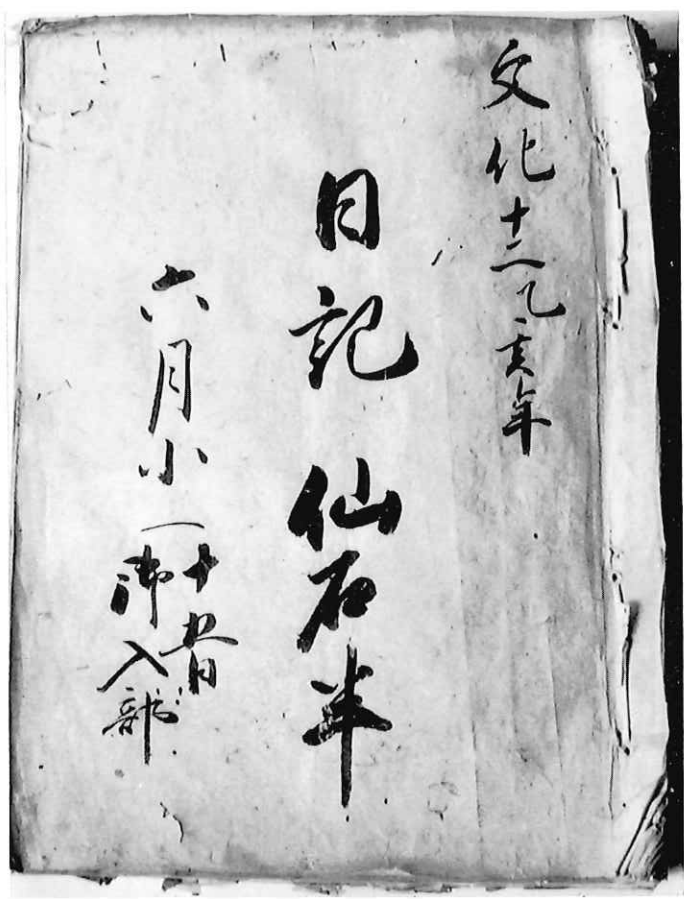 文化十二乙亥年
日記 仙石半
六月小
十五日
御入部